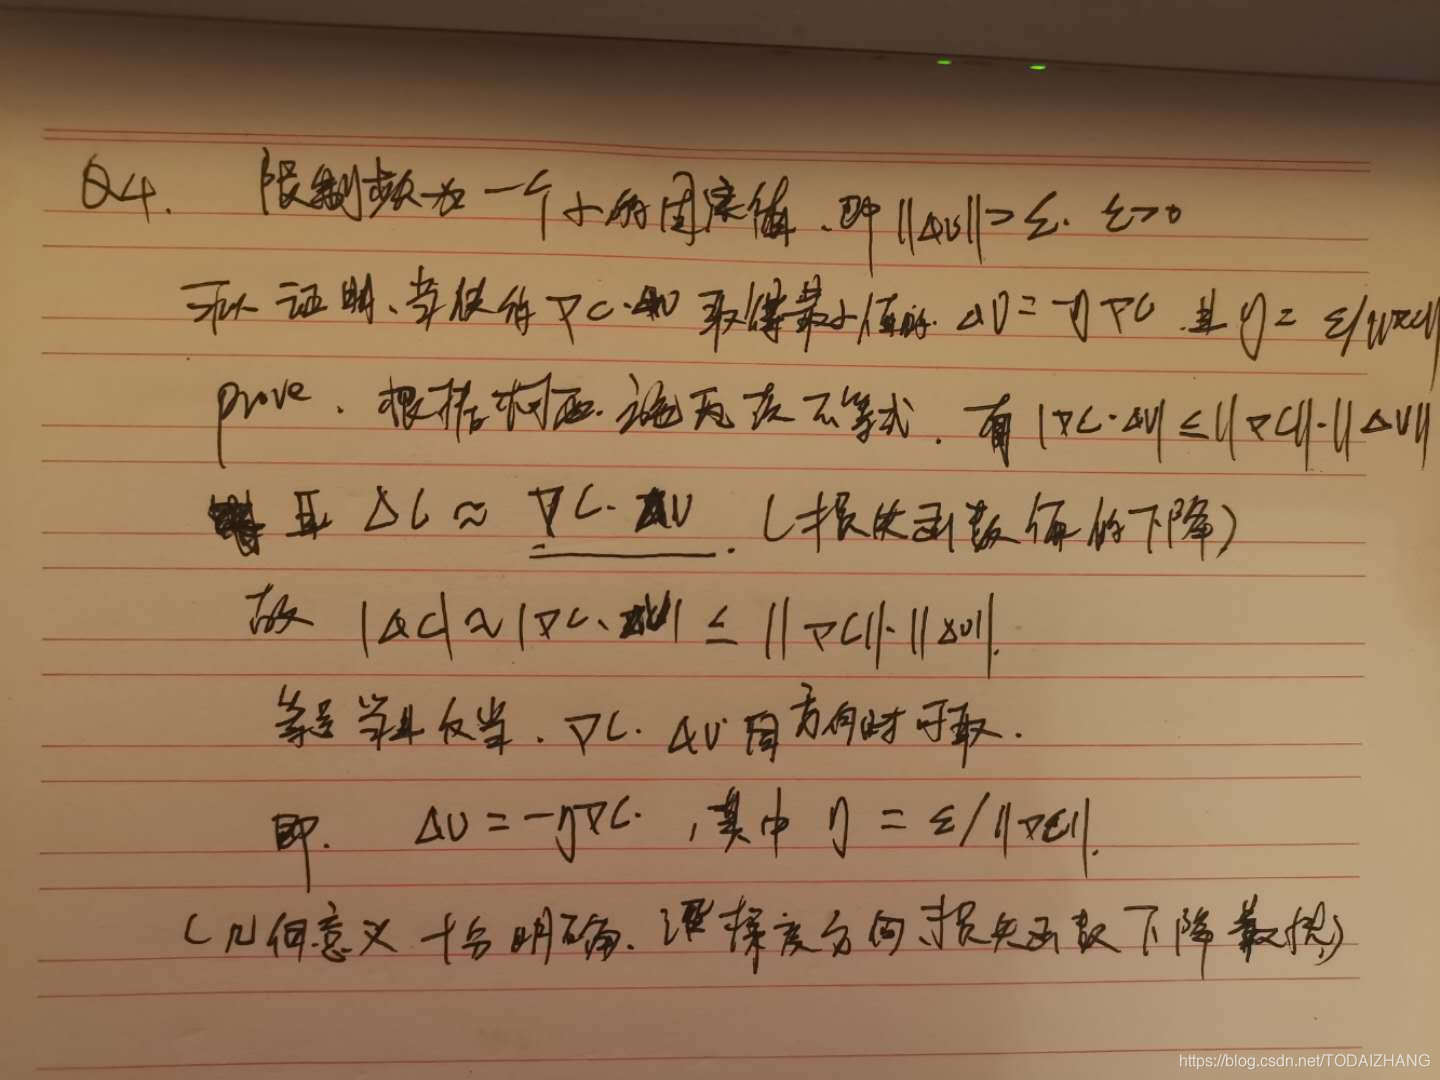 Q4. 限制步长为一个小的固定值、即 ||ΔU||=ε. ε>0
证明、当使得 ∇C·ΔU 取得最小值时. ΔU=-η∇C 且 η= ε/||∇C||
prove. 根据柯西. 不等式. 有 |∇C·ΔU| ≤ ||∇C||·||ΔU||
且 ΔC ≈ ∇C·ΔU. (损失函数值的下降)
故 |ΔC| ≈ |∇C·ΔU| ≤ ||∇C||·||ΔU||.
等号当且仅当. ∇C. ΔU 同方向时可取.
即. ΔU = -η∇C. , 其中 η = ε/||∇C||.
(几何意义十分明确. 梯度方向、损失函数下降最快)
https://blog.csdn.net/TODAIZHANG